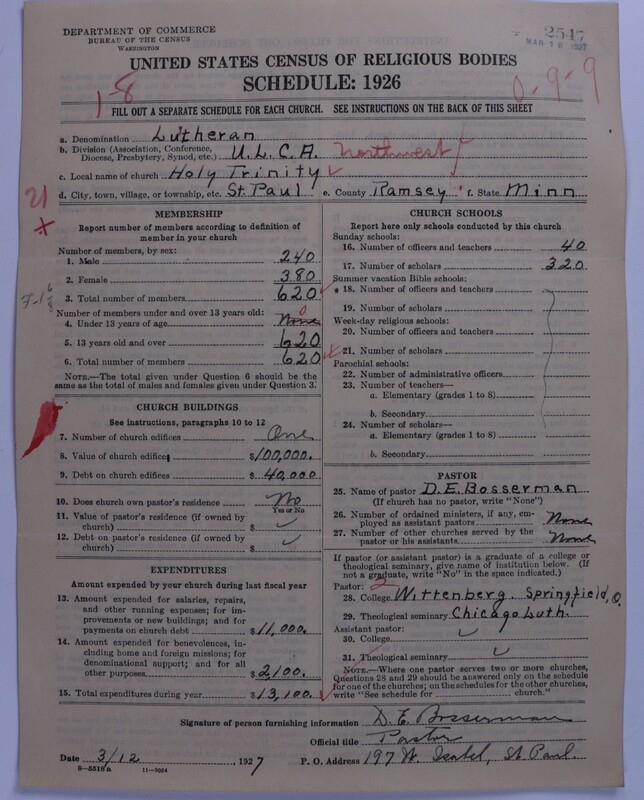 DEPARTMENT OF COMMERCE
BUREAU OF THE CENSUS
WASHINGTON
2547
MAR 16 1927
UNITED STATES CENSUS OF RELIGIOUS BODIES
SCHEDULE: 1926
1-8
0-9-9
FILL OUT A SEPARATE SCHEDULE FOR EACH CHURCH. SEE INSTRUCTIONS ON THE BACK OF THIS SHEET
a. Denomination Lutheran
b. Division (Association, Conference, Diocese, Presbytery, Synod, etc.) U.L.C.A. Northwest
c. Local name of church Holy Trinity
d. City, town, village, or township, etc. St. Paul e. County Ramsey f. State Minn
21
MEMBERSHIP
Report number of members according to definition of
member in your church
Number of members, by sex:
1. Male 240
2. Female 380
3. Total number of members 620
Number of members under and over 13 years old:
4. Under 13 years of age None 0
5. 13 years old and over 620
6. Total number of members 620
NOTE.—The total given under Question 6 should be the
same as the total of males and females given under Question 3.
CHURCH BUILDINGS
See instructions, paragraphs 10 to 12
7. Number of church edifices One
8. Value of church edifices $100,000.
9. Debt on church edifices $40,000
10. Does church own pastor's residence No
Yes or No
11. Value of pastor's residence (if owned by
church) $ ✓
12. Debt on pastor's residence (if owned by
church) $ ✓
EXPENDITURES
Amount expended by your church during last fiscal year
13. Amount expended for salaries, repairs,
and other running expenses; for im-
provements or new buildings; and for
payments on church debt $11,000.
14. Amount expended for benevolences, in-
cluding home and foreign missions; for
denominational support; and for all
other purposes $2,100.
15. Total expenditures during year $13,100.
CHURCH SCHOOLS
Report here only schools conducted by this church
Sunday schools:
16. Number of officers and teachers 40
17. Number of scholars 320
Summer vacation Bible schools:
18. Number of officers and teachers
19. Number of scholars
Week-day religious schools:
20. Number of officers and teachers
21. Number of scholars
Parochial schools:
22. Number of administrative officers
23. Number of teachers—
a. Elementary (grades 1 to 8)
b. Secondary
24. Number of scholars—
a. Elementary (grades 1 to 8)
b. Secondary
PASTOR
25. Name of pastor D. E. Bosserman
(If church has no pastor, write "None")
26. Number of ordained ministers, if any, em-
ployed as assistant pastors None
27. Number of other churches served by the
pastor or his assistants None
If pastor (or assistant pastor) is a graduate of a college or
theological seminary, give name of institution below. (If
not a graduate, write "No" in the space indicated.)
Pastor: 2
28. College Wittenberg. Springfield, O.
29. Theological seminary Chicago Luth.
Assistant pastor:
30. College ✓
31. Theological seminary ✓
NOTE.—Where one pastor serves two or more churches,
Questions 28 and 29 should be answered only on the schedule
for one of the churches; on the schedules for the other churches,
write "See schedule for church."
Signature of person furnishing information D. E. Bosserman
Official title Pastor
Date 3/12, 1927 P. O. Address 197 W. Isabel, St. Paul
8—5518 a 11—9064